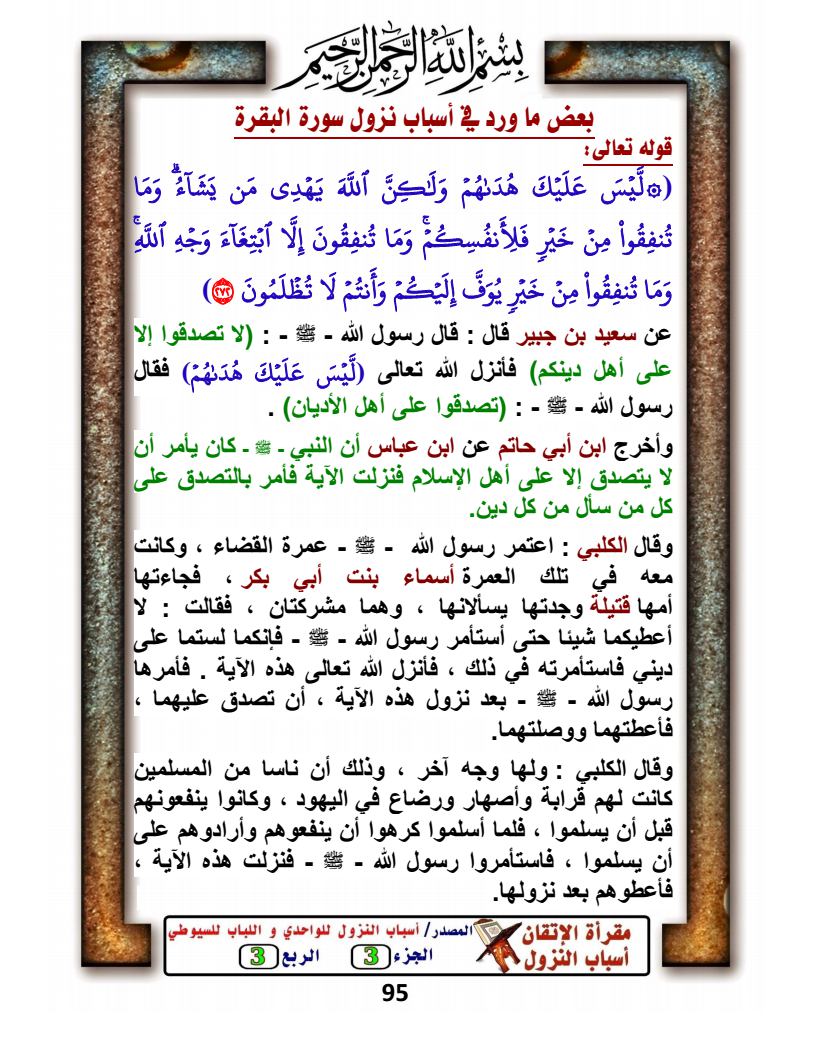 بِسْمِ اللَّهِ الرَّحْمَنِ الرَّحِيمِ
بعض ما ورد في أسباب نزول سورة البقرة
قوله تعالى:
(۞لَّيْسَ عَلَيْكَ هُدَىٰهُمْ وَلَٰكِنَّ ٱللَّهَ يَهْدِى مَن يَشَآءُ ۗ وَمَا
تُنفِقُوا۟ مِنْ خَيْرٍ فَلِأَنفُسِكُمْ ۚ وَمَا تُنفِقُونَ إِلَّا ٱبْتِغَآءَ وَجْهِ ٱللَّهِ ۚ
وَمَا تُنفِقُوا۟ مِنْ خَيْرٍ يُوَفَّ إِلَيْكُمْ وَأَنتُمْ لَا تُظْلَمُونَ ٢٧٢)
عن سعيد بن جبير قال : قال رسول الله - ﷺ - : (لا تصدقوا إلا
على أهل دينكم) فأنزل الله تعالى (لَّيْسَ عَلَيْكَ هُدَىٰهُمْ) فقال
رسول الله - ﷺ - : (تصدقوا على أهل الأديان) .
وأخرج ابن أبي حاتم عن ابن عباس أن النبي - ﷺ - كان يأمر أن
لا يتصدق إلا على أهل الإسلام فنزلت الآية فأمر بالتصدق على
كل من سأل من كل دين.
وقال الكلبي : اعتمر رسول الله - ﷺ - عمرة القضاء ، وكانت
معه في تلك العمرة أسماء بنت أبي بكر ، فجاءتها
أمها قتيلة وجدتها يسألانها ، وهما مشركتان ، فقالت : لا
أعطيكما شيئا حتى أستأمر رسول الله - ﷺ - فإنكما لستما على
ديني فاستأمرته في ذلك ، فأنزل الله تعالى هذه الآية . فأمرها
رسول الله - ﷺ - بعد نزول هذه الآية ، أن تصدق عليهما ،
فأعطتهما ووصلتهما.
وقال الكلبي : ولها وجه آخر ، وذلك أن ناسا من المسلمين
كانت لهم قرابة وأصهار ورضاع في اليهود ، وكانوا ينفعونهم
قبل أن يسلموا ، فلما أسلموا كرهوا أن ينفعوهم وأرادوهم على
أن يسلموا ، فاستأمروا رسول الله - ﷺ - فنزلت هذه الآية ،
فأعطوهم بعد نزولها.
مقرأة الإتقان
أسباب النزول
المصدر/ أسباب النزول للواحدي و اللباب للسيوطي
الجزء 3 الربع 3
95